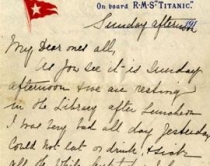 On board R.M.S. "TITANIC."
Sunday afternoon
My Dear ones all,
As you see it is Sunday
afternoon & we are resting
in the Library after Luncheon
I was very bad all day yesterday
Could not eat or drink, & sick
all the while